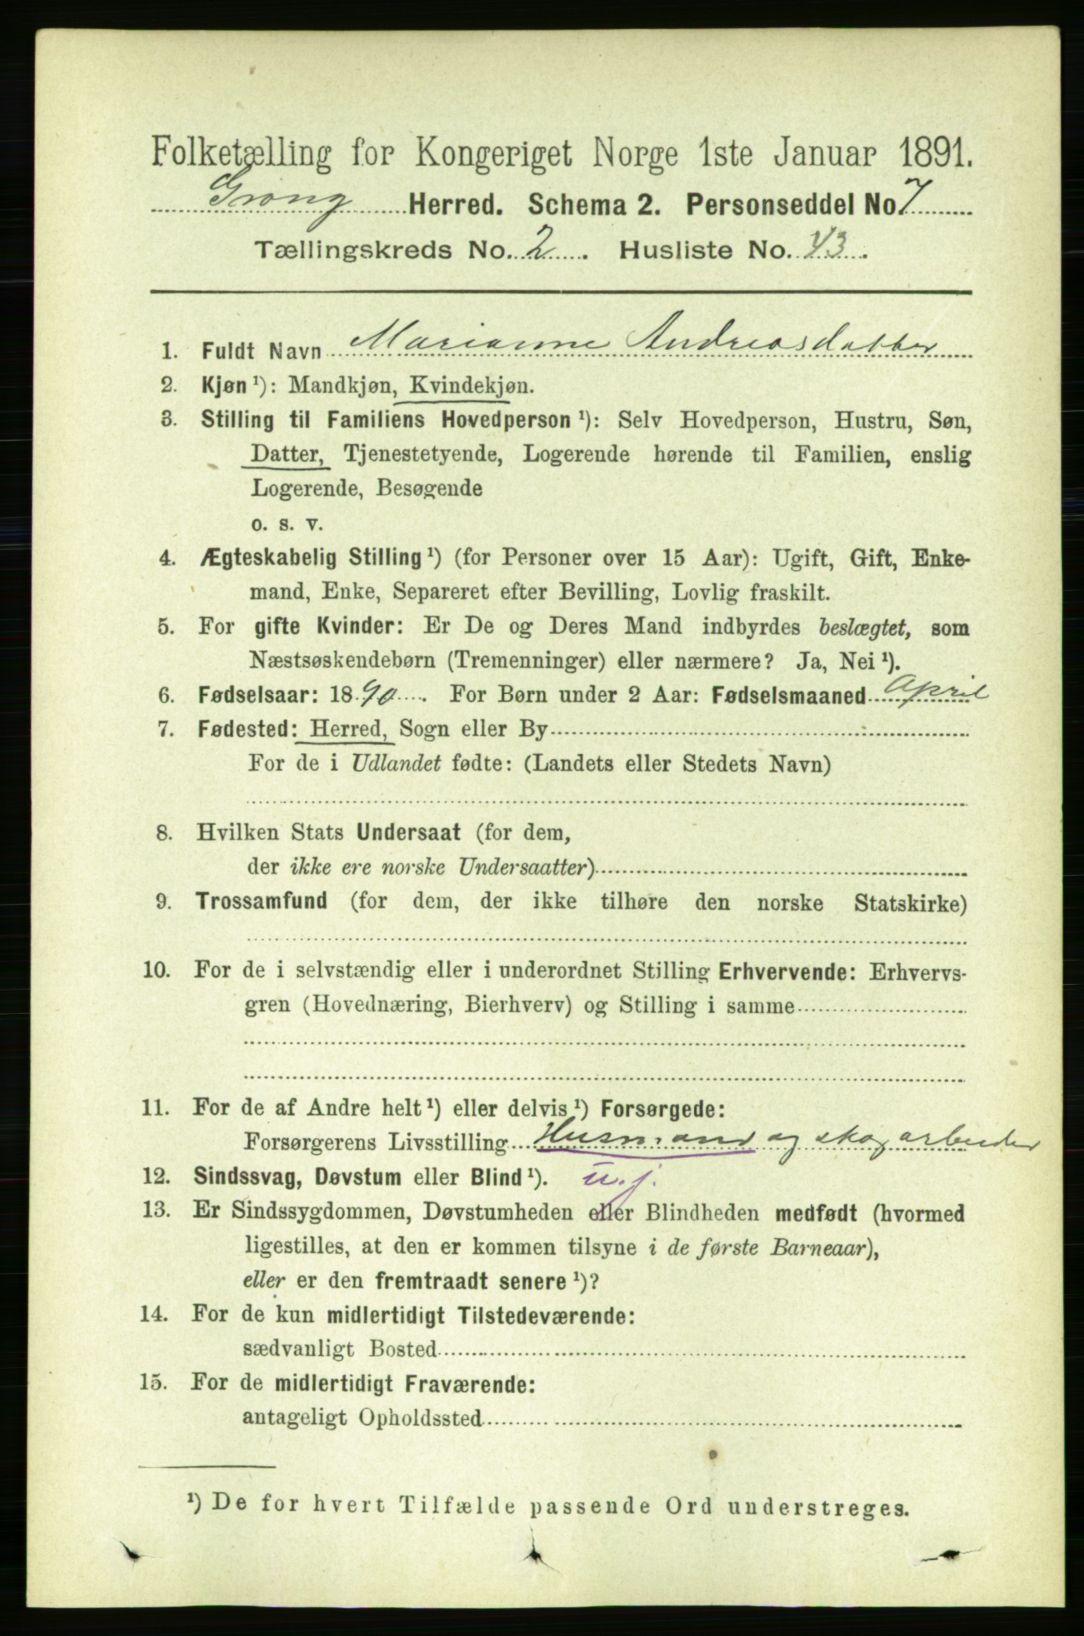 Folketælling for Kongeriget Norge 1ste Januar 1891.
Grong Herred. Schema 2. Personseddel No. 7
Tællingskreds No. 2. Husliste No. 43.
1. Fuldt Navn Marianne Andreasdatter
2. Kjøn ¹): Mandkjøn, Kvindekjøn.
3. Stilling til Familiens Hovedperson ¹): Selv Hovedperson, Hustru, Søn,
Datter, Tjenestetyende, Logerende hørende til Familien, enslig
Logerende, Besøgende
o. s. v.
4. Ægteskabelig Stilling ¹) (for Personer over 15 Aar): Ugift, Gift, Enke-
mand, Enke, Separeret efter Bevilling, Lovlig fraskilt.
5. For gifte Kvinder: Er De og Deres Mand indbyrdes beslægtet, som
Næstsøskendebørn (Tremenninger) eller nærmere? Ja, Nei ¹).
6. Fødselsaar: 1890. For Børn under 2 Aar: Fødselsmaaned April
7. Fødested: Herred, Sogn eller By
For de i Udlandet fødte: (Landets eller Stedets Navn)
8. Hvilken Stats Undersaat (for dem,
der ikke ere norske Undersaatter)
9. Trossamfund (for dem, der ikke tilhøre den norske Statskirke)
10. For de i selvstændig eller i underordnet Stilling Erhvervende: Erhvervs-
gren (Hovednæring, Bierhverv) og Stilling i samme
11. For de af Andre helt ¹) eller delvis ¹) Forsørgede:
Forsørgerens Livsstilling Husmand og skogarbeider
12. Sindssvag, Døvstum eller Blind ¹). u. j.
13. Er Sindssygdommen, Døvstumheden eller Blindheden medfødt (hvormed
ligestilles, at den er kommen tilsyne i de første Barneaar),
eller er den fremtraadt senere ¹)?
14. For de kun midlertidigt Tilstedeværende:
sædvanligt Bosted
15. For de midlertidigt Fraværende:
antageligt Opholdssted
¹) De for hvert Tilfælde passende Ord understreges.